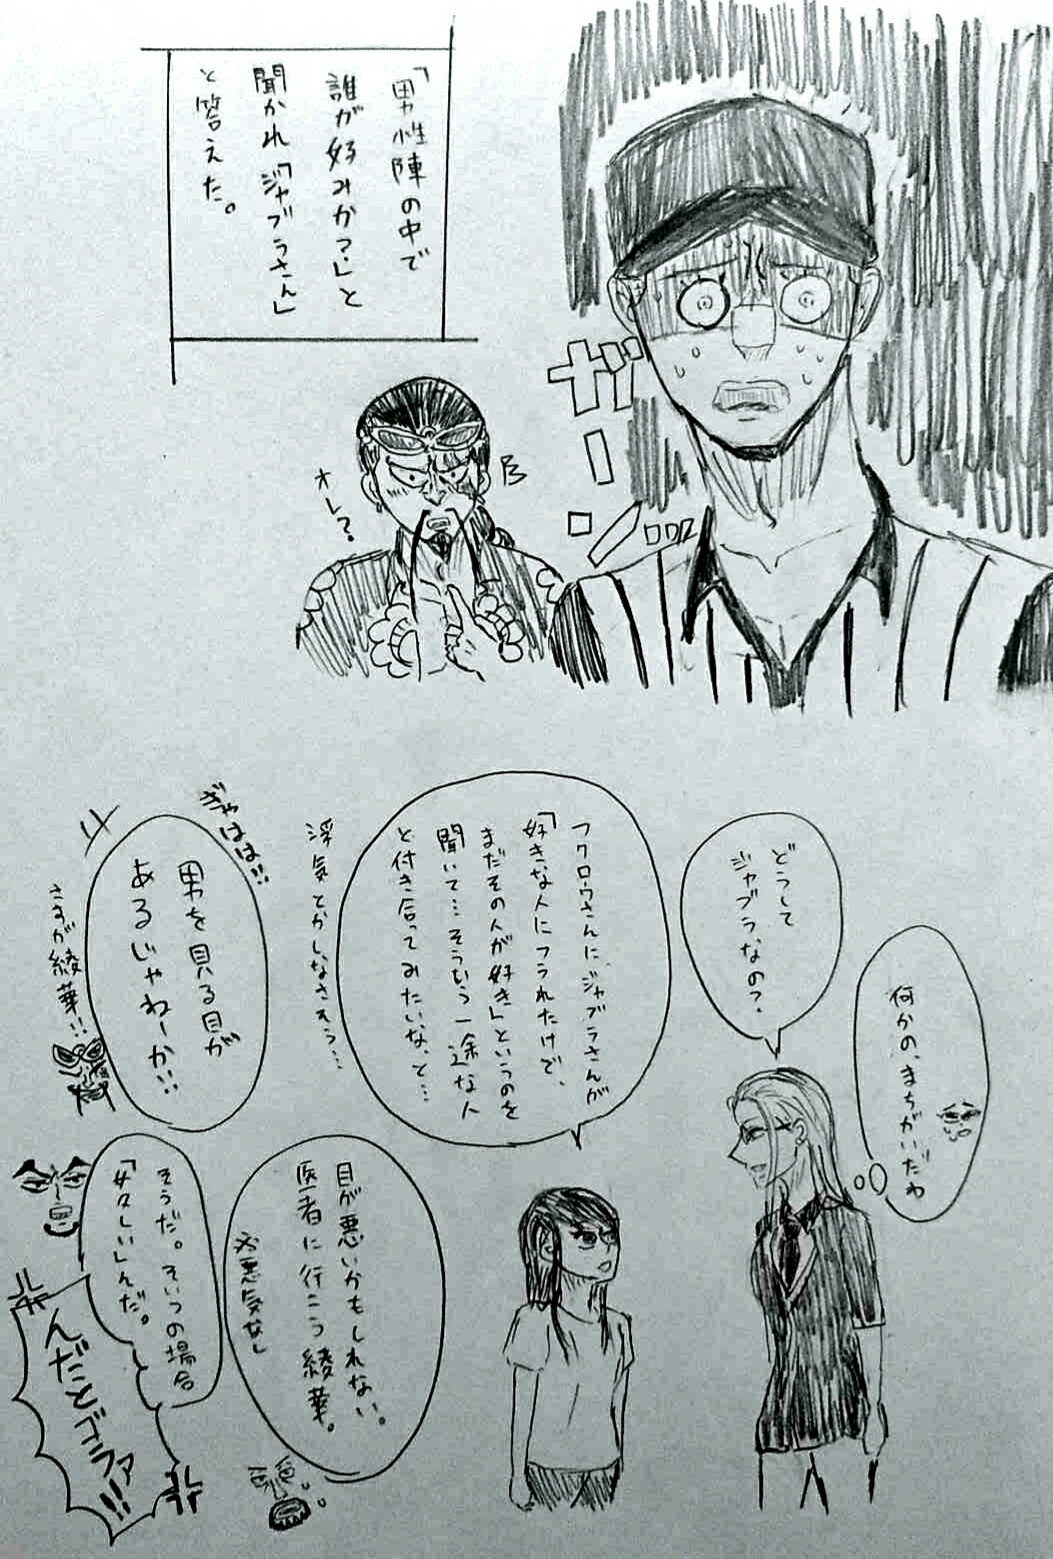 「男性陣の中で
誰が好みか？」と
聞かれ「ジャブラさん」
と答えた。
ガーン
オレ？
何かの、まちがいだわ
どうして
ジャブラなの？
フクロウさんに、ジャブラさんが
「好きな人にフラれたけで、
まだその人が好き」というのを
聞いて…そういう一途な人
と付き合ってみたいな、と…
浮気とかしなさそう…
ぎゃはは!!
男を見る目が
あるじゃねーか!!
さすが綾華!!
目が悪いかもしれない。
医者に行こう綾華。
※悪気なし
そうだ。そいつの場合
「女々しい」んだ。
んだとゴラァ!!!